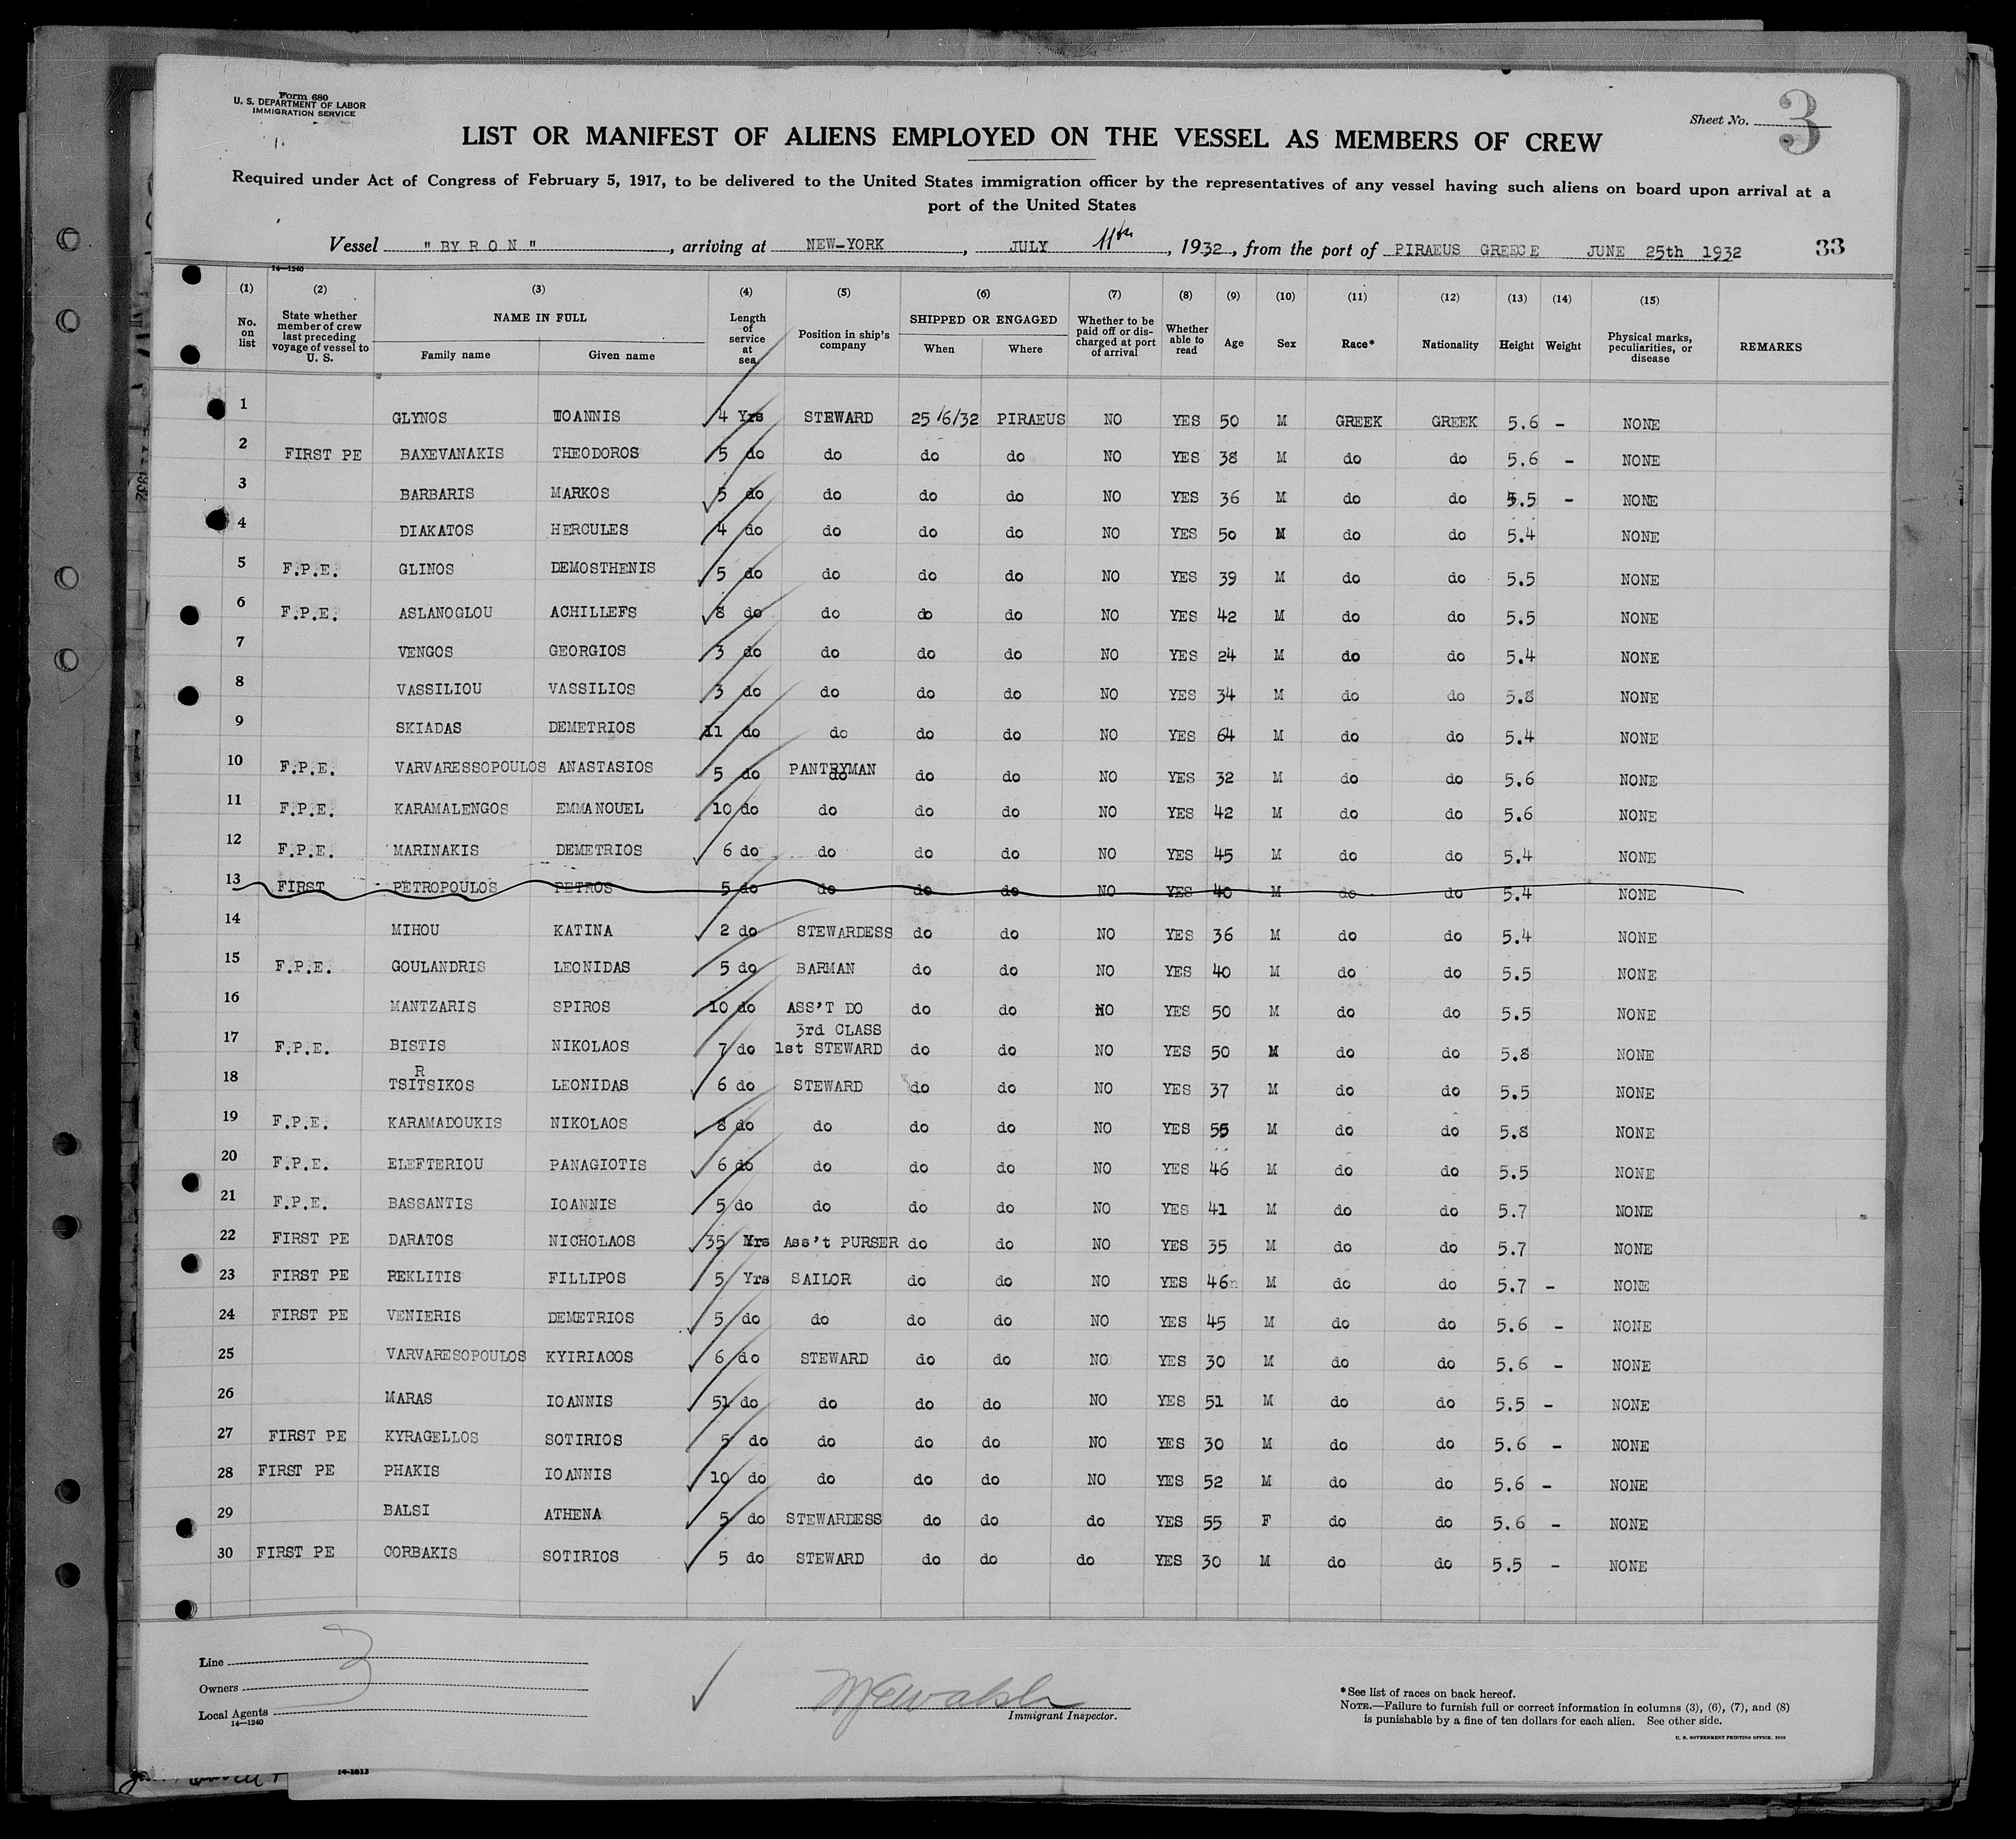 Form 680
U. S. DEPARTMENT OF LABOR
IMMIGRATION SERVICE
Sheet No. 3
LIST OR MANIFEST OF ALIENS EMPLOYED ON THE VESSEL AS MEMBERS OF CREW
Required under Act of Congress of February 5, 1917, to be delivered to the United States immigration officer by the representatives of any vessel having such aliens on board upon arrival at a
port of the United States
Vessel "BYRON", arriving at NEW-YORK, JULY 11th, 1932, from the port of PIRAEUS GREECE JUNE 25th 1932 33
14-1240
(1) (2) (3) (4) (5) (6) (7) (8) (9) (10) (11) (12) (13) (14) (15)
No. on list | State whether member of crew last preceding voyage of vessel to U. S. | NAME IN FULL Family name Given name | Length of service at sea | Position in ship's company | SHIPPED OR ENGAGED When Where | Whether to be paid off or discharged at port of arrival | Whether able to read | Age | Sex | Race* | Nationality | Height | Weight | Physical marks, peculiarities, or disease | REMARKS
1 GLYNOS IOANNIS 4 Yrs STEWARD 25/6/32 PIRAEUS NO YES 50 M GREEK GREEK 5.6 - NONE
2 FIRST PE BAXEVANAKIS THEODOROS 5 do do do do NO YES 38 M do do 5.6 - NONE
3 BARBARIS MARKOS 5 do do do do NO YES 36 M do do 5.5 - NONE
4 DIAKATOS HERCULES 4 do do do do NO YES 50 M do do 5.4 NONE
5 F.P.E. GLINOS DEMOSTHENIS 5 do do do do NO YES 39 M do do 5.5 NONE
6 F.P.E. ASLANOGLOU ACHILLEFS 8 do do do do NO YES 42 M do do 5.5 NONE
7 VENGOS GEORGIOS 3 do do do do NO YES 24 M do do 5.4 NONE
8 VASSILIOU VASSILIOS 3 do do do do NO YES 34 M do do 5.8 NONE
9 SKIADAS DEMETRIOS 11 do do do do NO YES 64 M do do 5.4 NONE
10 F.P.E. VARVARESSOPOULOS ANASTASIOS 5 do PANTRYMAN do do NO YES 32 M do do 5.6 NONE
11 F.P.E. KARAMALENGOS EMMANOUEL 10 do do do do NO YES 42 M do do 5.6 NONE
12 F.P.E. MARINAKIS DEMETRIOS 6 do do do do NO YES 45 M do do 5.4 NONE
13 FIRST PETROPOULOS PETROS 5 do do do do NO YES 40 M do do 5.4 NONE
14 MIHOU KATINA 2 do STEWARDESS do do NO YES 36 M do do 5.4 NONE
15 F.P.E. GOULANDRIS LEONIDAS 5 do BARMAN do do NO YES 40 M do do 5.5 NONE
16 MANTZARIS SPIROS 10 do ASS'T DO do do NO YES 50 M do do 5.5 NONE
17 F.P.E. BISTIS NIKOLAOS 7 do 3rd CLASS 1st STEWARD do do NO YES 50 M do do 5.8 NONE
18 TSITRSIKOS LEONIDAS 6 do STEWARD do do NO YES 37 M do do 5.5 NONE
19 F.P.E. KARAMADOUKIS NIKOLAOS 8 do do do do NO YES 55 M do do 5.8 NONE
20 F.P.E. ELEFTERIOU PANAGIOTIS 6 do do do do NO YES 46 M do do 5.5 NONE
21 F.P.E. BASSANTIS IOANNIS 5 do do do do NO YES 41 M do do 5.7 NONE
22 FIRST PE DARATOS NICHOLAOS 35 Yrs Ass't PURSER do do NO YES 35 M do do 5.7 NONE
23 FIRST PE REKLITIS FILLIPOS 5 Yrs SAILOR do do NO YES 46 M do do 5.7 - NONE
24 FIRST PE VENIERIS DEMETRIOS 5 do do do do NO YES 45 M do do 5.6 - NONE
25 VARVARESOPOULOS KYIRIACOS 6 do STEWARD do do NO YES 30 M do do 5.6 - NONE
26 MARAS IOANNIS 51 do do do do NO YES 51 M do do 5.5 - NONE
27 FIRST PE KYRAGELLOS SOTIRIOS 5 do do do do NO YES 30 M do do 5.6 - NONE
28 FIRST PE PHAKIS IOANNIS 10 do do do do NO YES 52 M do do 5.6 - NONE
29 BALSI ATHENA 5 do STEWARDESS do do do YES 55 F do do 5.6 - NONE
30 FIRST PE CORBAKIS SOTIRIOS 5 do STEWARD do do do YES 30 M do do 5.5 - NONE
Line
Owners
Local Agents
14-1240
3
Immigrant Inspector.
*See list of races on back hereof.
NOTE.—Failure to furnish full or correct information in columns (3), (6), (7), and (8)
is punishable by a fine of ten dollars for each alien. See other side.
14-1613